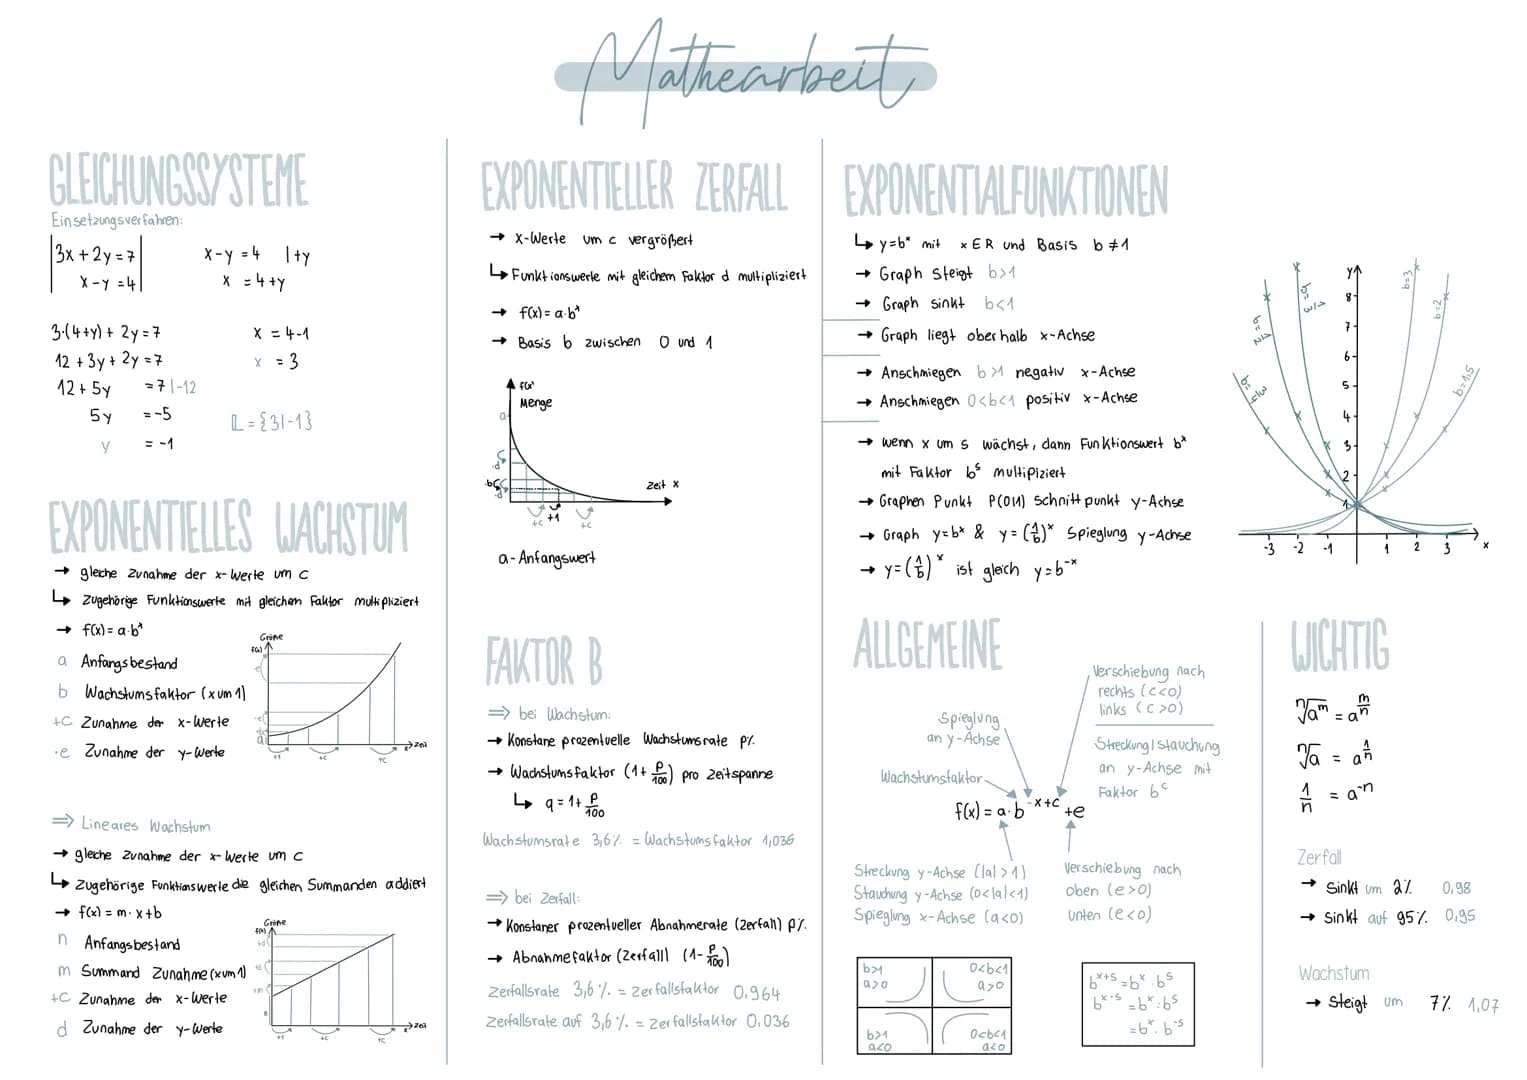 Mathearbeit
GLEICHUNGSSYSTEME
Einsetzungsverfahren:
3x + 2y = 7
x - y = 4
x - y = 4 |+y
x = 4 + y
3·(4+y) + 2y = 7
12 + 3y + 2y = 7
12 + 5y = 7 |-12
5y = -5
y = -1
x = 4-1
x = 3
𝕃 = {3|-1}
EXPONENTIELLES WACHSTUM
→ gleiche Zunahme der x-Werte um c
↳ Zugehörige Funktionswerte mit gleichem Faktor multipliziert
→ f(x) = a·bˣ
a Anfangsbestand
b Wachstumsfaktor (x um 1)
+c Zunahme der x-Werte
·e Zunahme der y-Werte
Größe
f(x)
Zeit
+1 +c +c
⇒ Lineares Wachstum
→ gleiche Zunahme der x-Werte um c
↳ Zugehörige Funktionswerte die gleichen Summanden addiert
→ f(x) = m·x+b
n Anfangsbestand
m Summand Zunahme (x um 1)
+c Zunahme der x-Werte
d Zunahme der y-Werte
Größe
f(x)
Zeit
+1 +c +c
EXPONENTIELLER ZERFALL
→ x-Werte um c vergrößert
↳ Funktionswerte mit gleichem Faktor d multipliziert
→ f(x) = a·bˣ
→ Basis b zwischen 0 und 1
Menge
a
Zeit x
+c +1 +c
a - Anfangswert
FAKTOR B
⇒ bei Wachstum:
→ Konstane prozentuelle Wachstumsrate p%
→ Wachstumsfaktor (1+ p/100) pro Zeitspanne
↳ q = 1+ p/100
Wachstumsrate 3,6% = Wachstumsfaktor 1,036
⇒ bei Zerfall:
→ Konstaner prozentueller Abnahmerate (Zerfall) p%
→ Abnahmefaktor (Zerfall) (1- p/100)
Zerfallsrate 3,6% = Zerfallsfaktor 0,964
Zerfallsrate auf 3,6% = Zerfallsfaktor 0,036
EXPONENTIALFUNKTIONEN
↳ y=bˣ mit x ∈ ℝ und Basis b ≠ 1
→ Graph steigt b>1
→ Graph sinkt b<1
→ Graph liegt oberhalb x-Achse
→ Anschmiegen b>1 negativ x-Achse
→ Anschmiegen 0<b<1 positiv x-Achse
→ wenn x um s wächst, dann Funktionswert bˣ
mit Faktor bˢ multipiziert
→ Graphen Punkt P(0|1) Schnittpunkt y-Achse
→ Graph y=bˣ & y=(1/b)ˣ Spieglung y-Achse
→ y=(1/b)ˣ ist gleich y=b⁻ˣ
b=1/2
b=1/3
b=2/3
y
b=3
b=2
b=1,5
8
7
6
5
4
3
2
1
-3 -2 -1 1 2 3 x
ALLGEMEINE
Verschiebung nach
rechts (c<0)
links (c>0)
Streckung|Stauchung
an y-Achse mit
Faktor bᶜ
Spieglung
an y-Achse
Wachstumsfaktor
f(x) = a·b⁻ˣ⁺ᶜ +e
Streckung y-Achse (|a|>1)
Stauchung y-Achse (0<|a|<1)
Spieglung x-Achse (a<0)
Verschiebung nach
oben (e>0)
unten (e<0)
b>1
a>0
0<b<1
a>0
b>1
a<0
0<b<1
a<0
bˣ⁺ˢ = bˣ · bˢ
bˣ⁻ˢ = bˣ : bˢ
= bˣ · b⁻ˢ
WICHTIG
ⁿ√aᵐ = a^(m/n)
ⁿ√a = a^(1/n)
1/n = a⁻ⁿ
Zerfall
→ sinkt um 2% 0,98
→ sinkt auf 95% 0,95
Wachstum
→ steigt um 7% 1,07